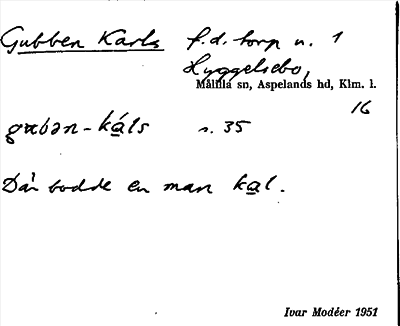 Gubben Karls f.d. torp u. 1
Hyggelsebo,
Målilla sn, Aspelands hd, Klm. l.
16
gɯbən-ka̲ls s. 35
Där bodde en man ka̲l.
Ivar Modéer 1951